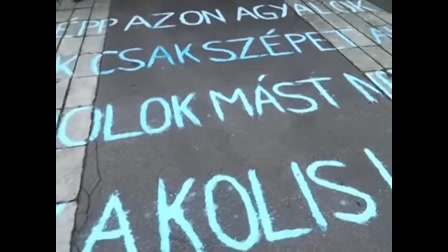 ÉPP AZON AGYALOK
K CSAK SZÉPET A
OLOK MÁST N
AKOLIS!